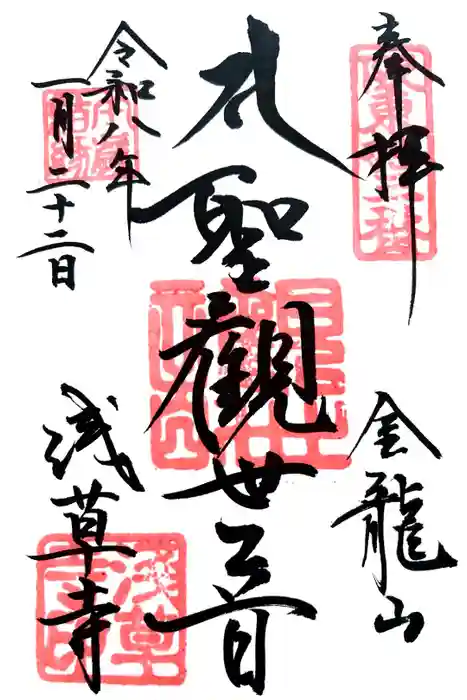 奉拝
金龍山
聖観世音
令和八年
一月二十二日
浅草寺